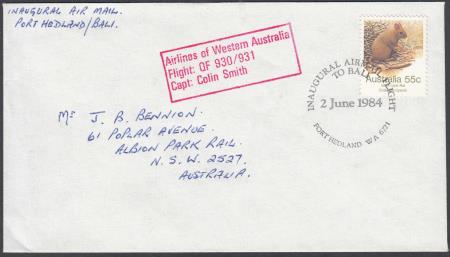 INAUGURAL AIR MAIL.
PORT HEDLAND/BALI.
Airlines of Western Australia
Flight: QF 930/931
Capt: Colin Smith
Australia 55c
INAUGURAL AIRMAIL FLIGHT
TO BALI
2 June 1984
PORT HEDLAND WA 6721
Mr J. B. BENNION.
61 POPLAR AVENUE.
ALBION PARK RAIL.
N.S.W. 2527.
AUSTRALIA.